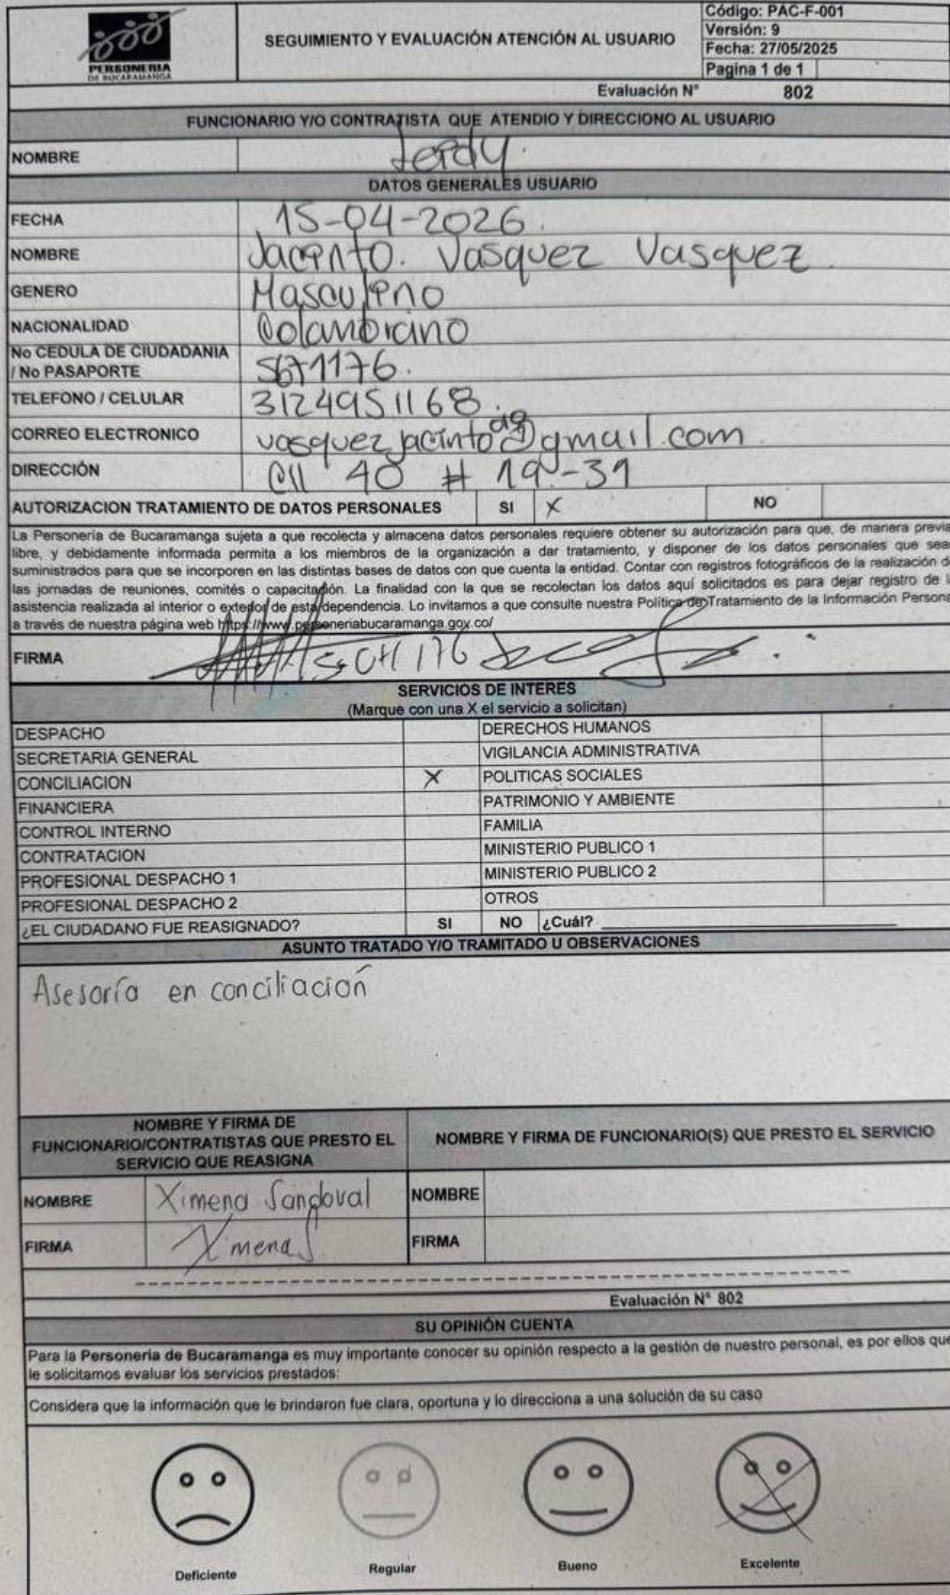 PERSONERIA
DE BUCARAMANGA
SEGUIMIENTO Y EVALUACIÓN ATENCIÓN AL USUARIO
Código: PAC-F-001
Versión: 9
Fecha: 27/05/2025
Pagina 1 de 1
Evaluación N° 802
FUNCIONARIO Y/O CONTRATISTA QUE ATENDIO Y DIRECCIONO AL USUARIO
NOMBRE
DATOS GENERALES USUARIO
FECHA 15-04-2026.
NOMBRE Jacinto. Vasquez Vasquez
GENERO Masculino
NACIONALIDAD Colombiano
No CEDULA DE CIUDADANIA
/ No PASAPORTE 5671176.
TELEFONO / CELULAR 3124951168.
CORREO ELECTRONICO vasquezjacinto @gmail.com
DIRECCIÓN Cll 40 # 19-31
AUTORIZACION TRATAMIENTO DE DATOS PERSONALES SI X NO
La Personería de Bucaramanga sujeta a que recolecta y almacena datos personales requiere obtener su autorización para que, de manera previa
libre, y debidamente informada permita a los miembros de la organización a dar tratamiento, y disponer de los datos personales que sea
suministrados para que se incorporen en las distintas bases de datos con que cuenta la entidad. Contar con registros fotográficos de la realización d
las jornadas de reuniones, comités o capacitación. La finalidad con la que se recolectan los datos aquí solicitados es para dejar registro de l
asistencia realizada al interior o exterior de esta dependencia. Lo invitamos a que consulte nuestra Política de Tratamiento de la Información Persona
a través de nuestra página web https://www.personeriabucaramanga.gov.co/
FIRMA
SERVICIOS DE INTERES
(Marque con una X el servicio a solicitan)
DESPACHO DERECHOS HUMANOS
SECRETARIA GENERAL VIGILANCIA ADMINISTRATIVA
CONCILIACION X POLITICAS SOCIALES
FINANCIERA PATRIMONIO Y AMBIENTE
CONTROL INTERNO FAMILIA
CONTRATACION MINISTERIO PUBLICO 1
PROFESIONAL DESPACHO 1 MINISTERIO PUBLICO 2
PROFESIONAL DESPACHO 2 OTROS
¿EL CIUDADANO FUE REASIGNADO? SI NO ¿Cuál?
ASUNTO TRATADO Y/O TRAMITADO U OBSERVACIONES
Asesoría en conciliación
NOMBRE Y FIRMA DE
FUNCIONARIO/CONTRATISTAS QUE PRESTO EL
SERVICIO QUE REASIGNA
NOMBRE Y FIRMA DE FUNCIONARIO(S) QUE PRESTO EL SERVICIO
NOMBRE Ximena Sandoval NOMBRE
FIRMA Ximena S FIRMA
Evaluación N° 802
SU OPINIÓN CUENTA
Para la Personería de Bucaramanga es muy importante conocer su opinión respecto a la gestión de nuestro personal, es por ellos que
le solicitamos evaluar los servicios prestados:
Considera que la información que le brindaron fue clara, oportuna y lo direcciona a una solución de su caso
Deficiente Regular Bueno Excelente